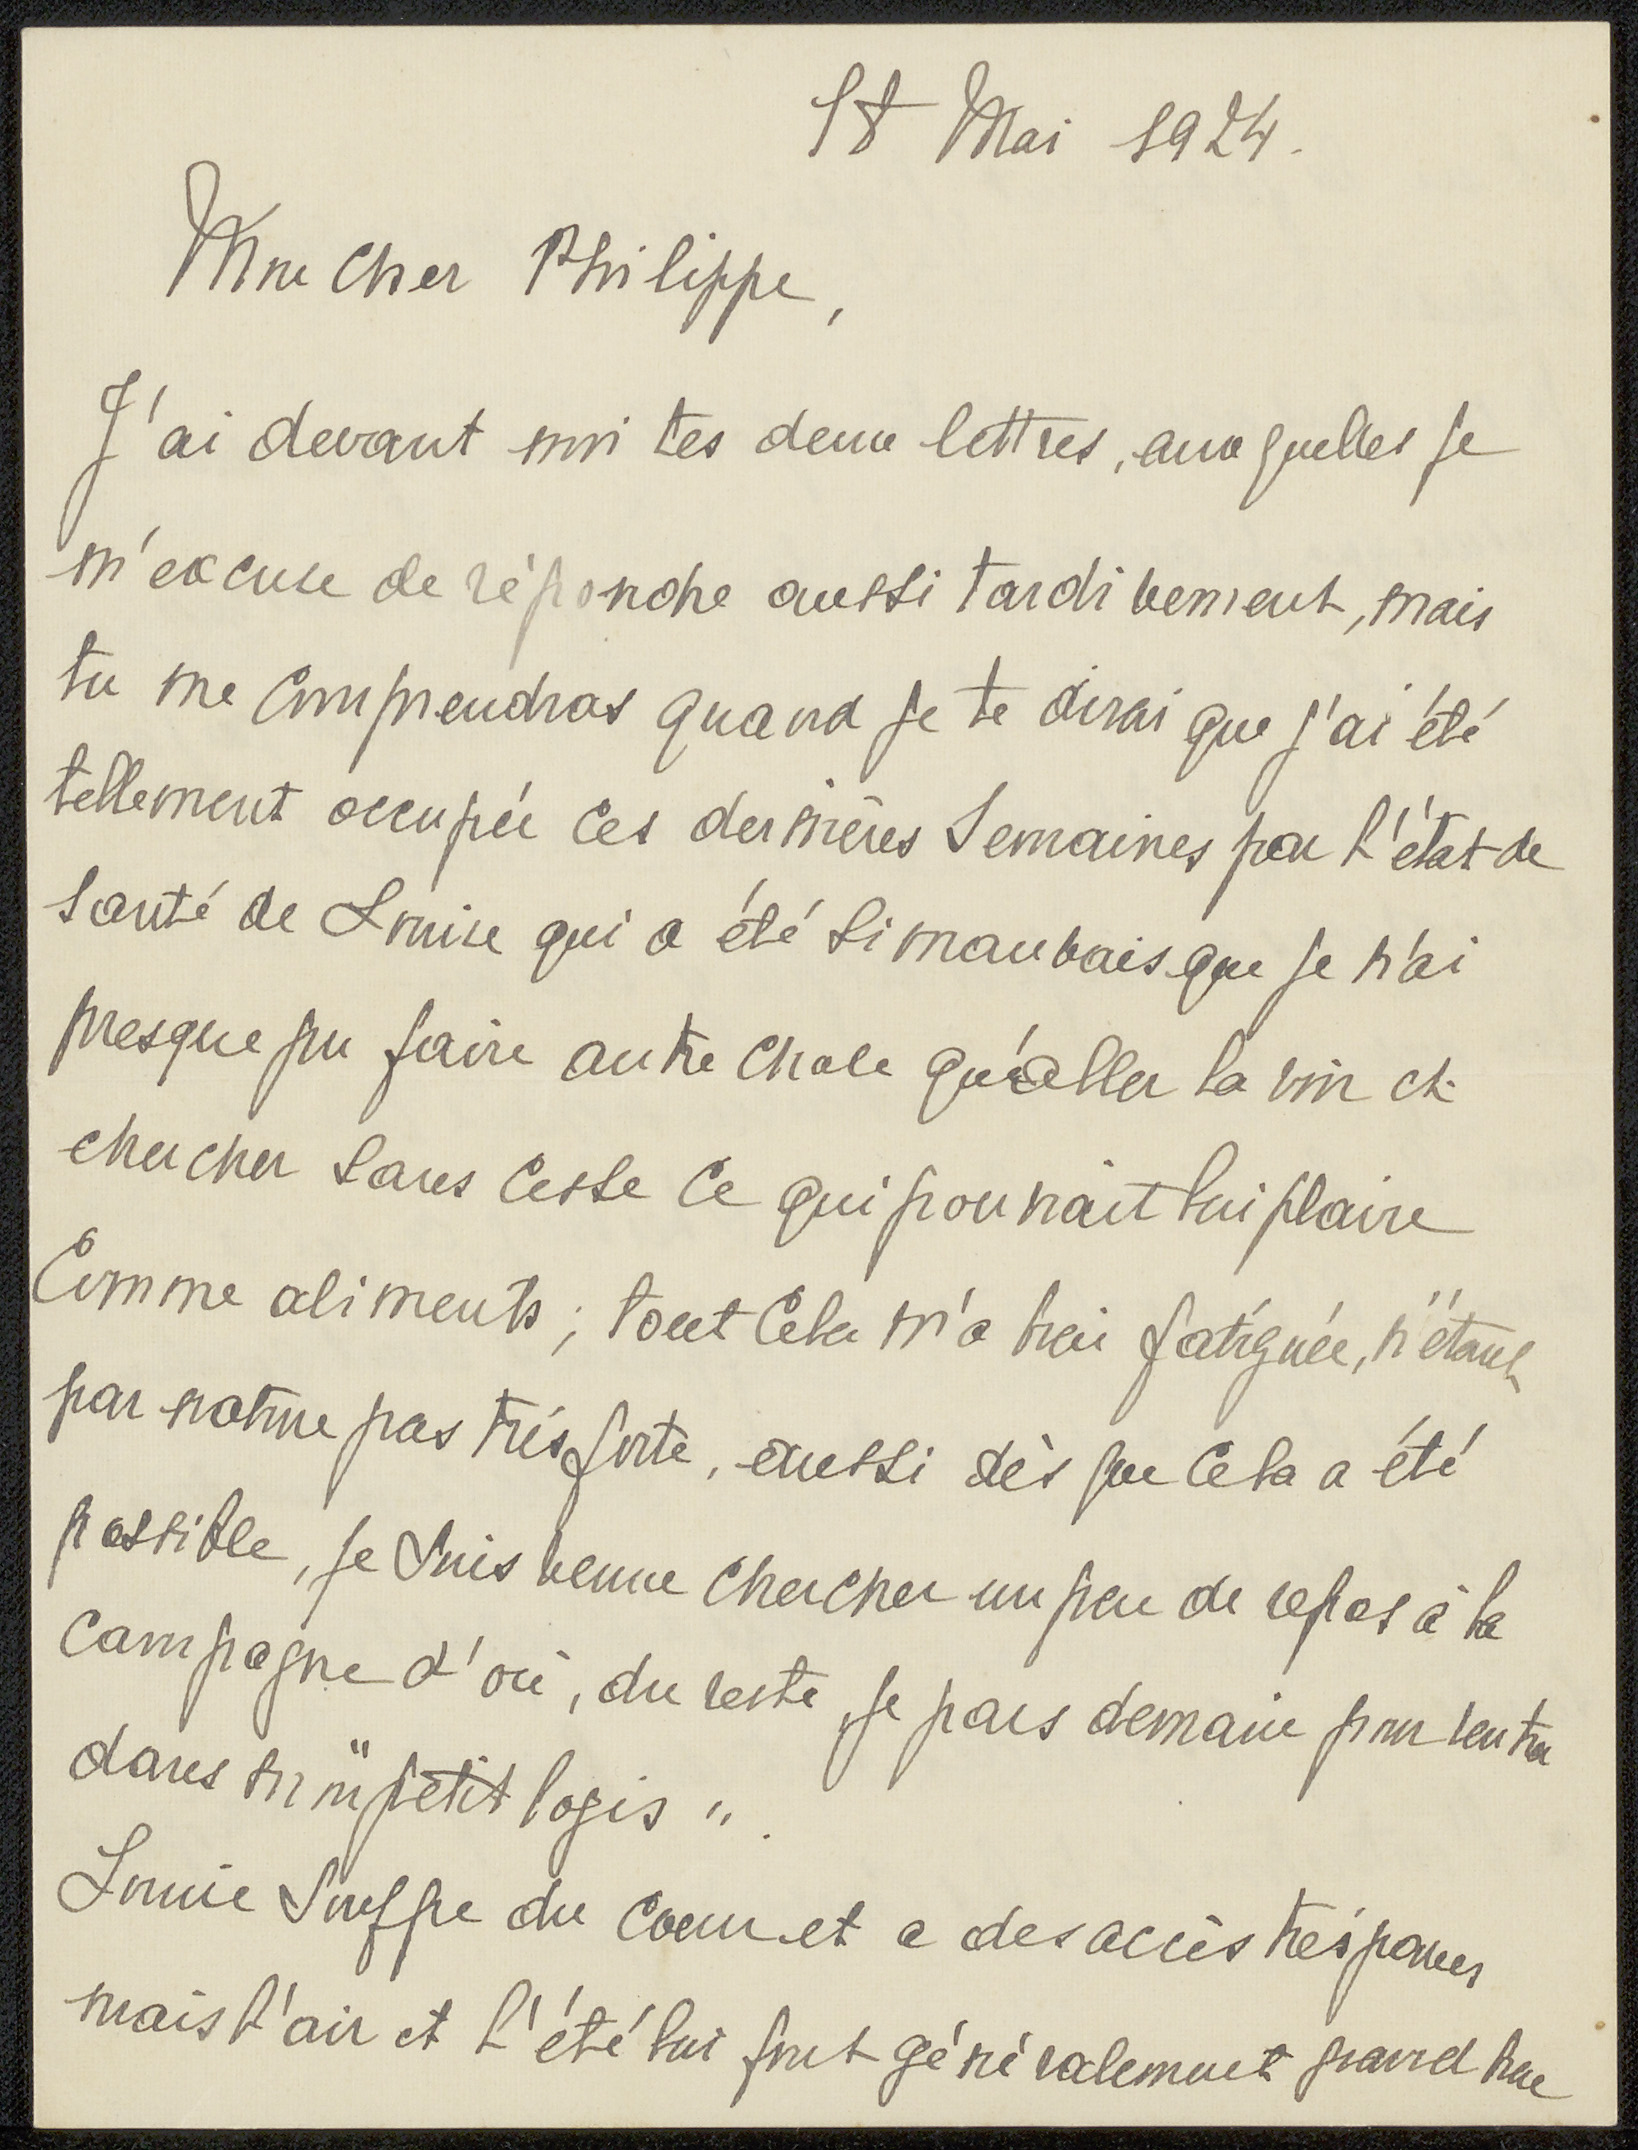 18 Mai 1924.
Mon cher Philippe,
J'ai devant moi tes deux lettres, auxquelles je
m'excuse de répondre aussi tardivement, mais
tu me comprendras quand je te dirai que j'ai été
tellement occupée ces dernières semaines par l'état de
santé de Louise qui a été si mauvais que je n'ai
presque pu faire autre chose qu'aller la voir et
chercher sans cesse ce qui pourrait lui plaire
comme aliments ; tout cela m'a bien fatiguée, n'étant
par nature pas très forte, aussi dès que cela a été
possible, je suis venue chercher un peu de repos à la
campagne d'où, du reste, je pars demain pour rentrer
dans mon "petit logis".
Louise souffre du coeur et a des accès très
mais l'air et l'été lui font généralement grand bien